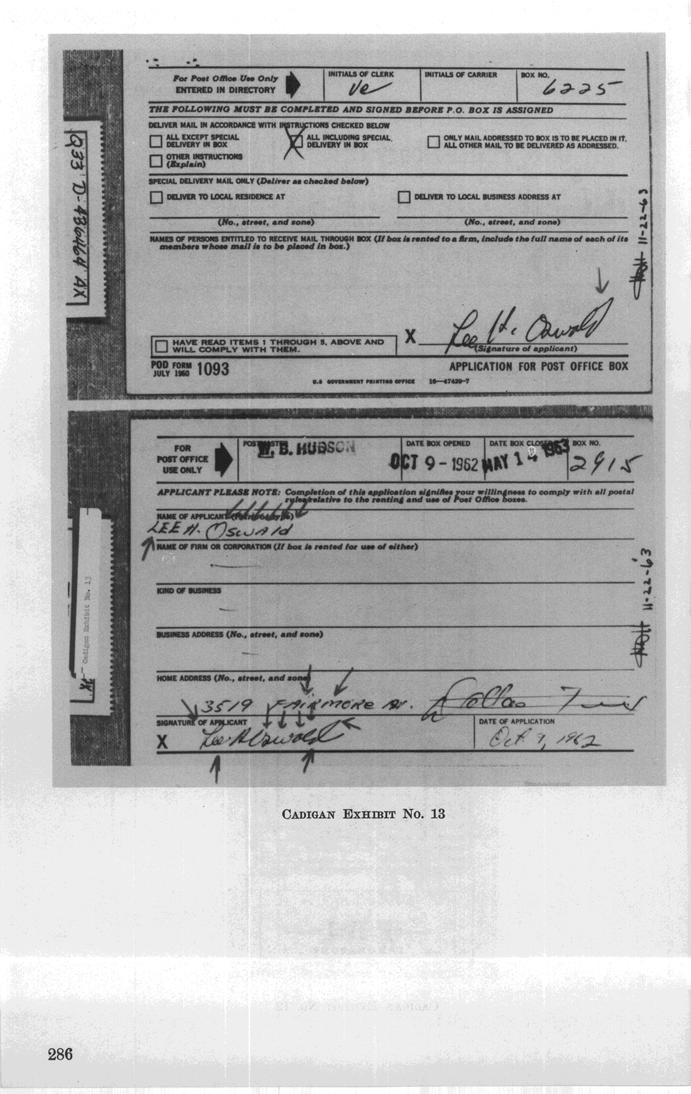 For Post Office Use Only
ENTERED IN DIRECTORY
INITIALS OF CLERK
Ve
INITIALS OF CARRIER
BOX NO.
6225
THE FOLLOWING MUST BE COMPLETED AND SIGNED BEFORE P.O. BOX IS ASSIGNED
DELIVER MAIL IN ACCORDANCE WITH INSTRUCTIONS CHECKED BELOW
ALL EXCEPT SPECIAL
DELIVERY IN BOX
X ALL INCLUDING SPECIAL
DELIVERY IN BOX
ONLY MAIL ADDRESSED TO BOX IS TO BE PLACED IN IT,
ALL OTHER MAIL TO BE DELIVERED AS ADDRESSED.
OTHER INSTRUCTIONS
(Explain)
SPECIAL DELIVERY MAIL ONLY (Deliver as checked below)
DELIVER TO LOCAL RESIDENCE AT
DELIVER TO LOCAL BUSINESS ADDRESS AT
(No., street, and zone)
(No., street, and zone)
NAMES OF PERSONS ENTITLED TO RECEIVE MAIL THROUGH BOX (If box is rented to a firm, include the full name of each of its
members whose mail is to be placed in box.)
I HAVE READ ITEMS 1 THROUGH 5, ABOVE AND
WILL COMPLY WITH THEM.
X Lee H. Oswald
(Signature of applicant)
POD FORM
JULY 1960 1093
APPLICATION FOR POST OFFICE BOX
U.S. GOVERNMENT PRINTING OFFICE 16—47429-7
Q33 D-436464 AX
11-22-63
FOR
POST OFFICE
USE ONLY
POSTMASTER
W. B. HUDSON
DATE BOX OPENED
OCT 9 - 1962
DATE BOX CLOSED
MAY 14 1963
BOX NO.
2915
APPLICANT PLEASE NOTE: Completion of this application signifies your willingness to comply with all postal
rules relative to the renting and use of Post Office boxes.
NAME OF APPLICANT (Print or type)
LEE H. OSWALD
NAME OF FIRM OR CORPORATION (If box is rented for use of either)
KIND OF BUSINESS
BUSINESS ADDRESS (No., street, and zone)
HOME ADDRESS (No., street, and zone)
3519 FAIRMORE AV. Dallas Tex
SIGNATURE OF APPLICANT
X Lee H Oswald
DATE OF APPLICATION
Oct. 9, 1962
Cadigan Exhibit No. 13
11-22-63
CADIGAN EXHIBIT No. 13
286